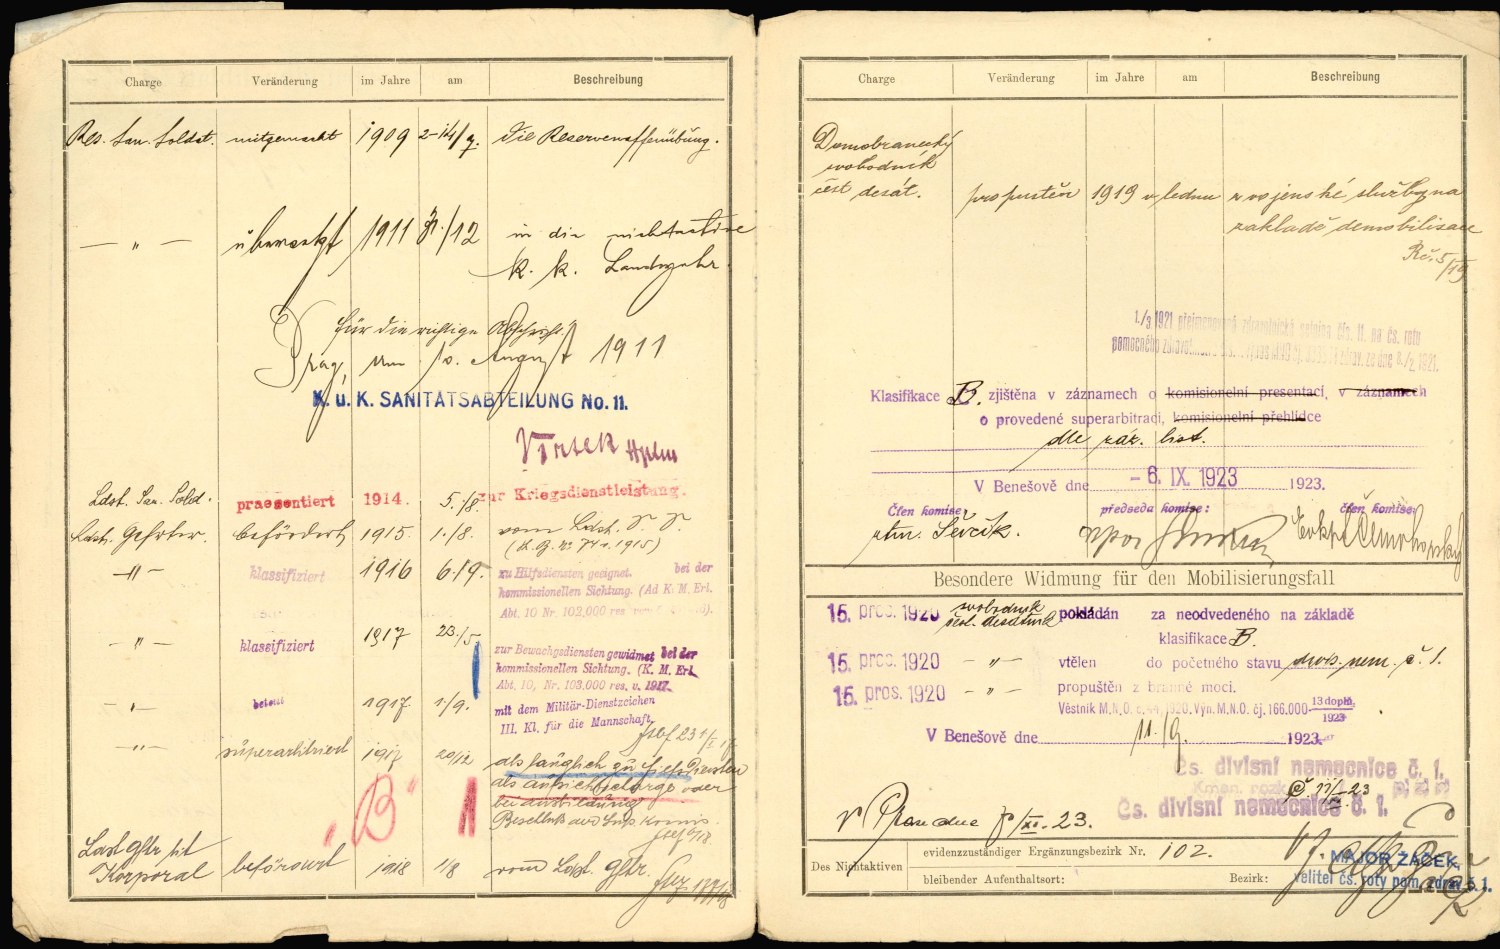 Charge Veränderung im Jahre am Beschreibung
Res. San. Soldat. mitgemacht 1909 2-14/9. die Reservewaffenübung.
— " — übersetzt 1911 31./12 in die nichtactive
k. k. Landwehr
für die richtige Abschrift!
Prag, am 10. August 1911
K. u. K. SANITÄTSABTEILUNG No. 11.
Ldst. San. Sold. praesentiert 1914. 5./8. zur Kriegsdienstleistung.
Ldst. Gefrter. befördert 1915. 1./8. vom Ldst.
—"— klassifiziert 1916 6./9. zu Hilfsdiensten geeignet. bei der
kommissionellen Sichtung. (Ad K. M. Erl.
Abt. 10 Nr. 102,000 res
—"— klassifiziert 1917 23./5 zur Bewachgsdiensten gewidmet bei der
kommissionellen Sichtung. (K. M. Erl.
Abt. 10, Nr. 103,000 res. v. 1917.
—"— beteilt 1917 1./9. mit dem Militär-Dienstzeichen
III. Kl. für die Mannschaft.
—"— superarbitriert 1917 29/12 als tauglich zu Hilfsdiensten
als Aufsichtscharge oder
bei Ausbildung
"B"
Ldst Gftr tit
Korporal befördert 1918 1/8 vom Ldst. Gftr.
Charge Veränderung im Jahre am Beschreibung
Domobranecký
svobodník
čest desát. propuštěn 1919 v lednu z vojenské služby na
základě demobilisace
Rč. 5/19
1./3. 1921 přejmenována zdravotnická setnina čís. 11. na čs. rotu
pomocného zdravotnictva
Klasifikace B. zjištěna v záznamech o komisionelní presentací, v záznamech
o provedené superarbitraci, komisionelní přehlídce
dle zázn. list.
V Benešově dne - 6. IX. 1923 1923.
Člen komise předseda komise: člen komise
rtm. Ševčík.
Besondere Widmung für den Mobilisierungsfall
15. pros. 1920 svobodník
čest. desátník pokládán za neodvedeného na základě
klasifikace B.
15. pros. 1920 — " — vtělen do početného stavu divis. nem. č. 1.
15. pros. 1920 — " — propuštěn z branné moci.
Věstník M.N.O. č. 44, 1920. Výn. M.N.O. čj. 166.000 13 doplň. 1923
V Benešově dne 11./9. 1923
Čs. divisní nemocnice č. 1.
Kmen. rozk. č.
Čs. divisní nemocnice č. 1.
V Praze dne 8/XI. 23.
Des Nichtaktiven evidenzzuständiger Ergänzungsbezirk Nr. 102.
bleibender Aufenthaltsort: Bezirk:
MAJOR ŽÁČEK,
velitel čs. roty pom. zdrav. č. 1.